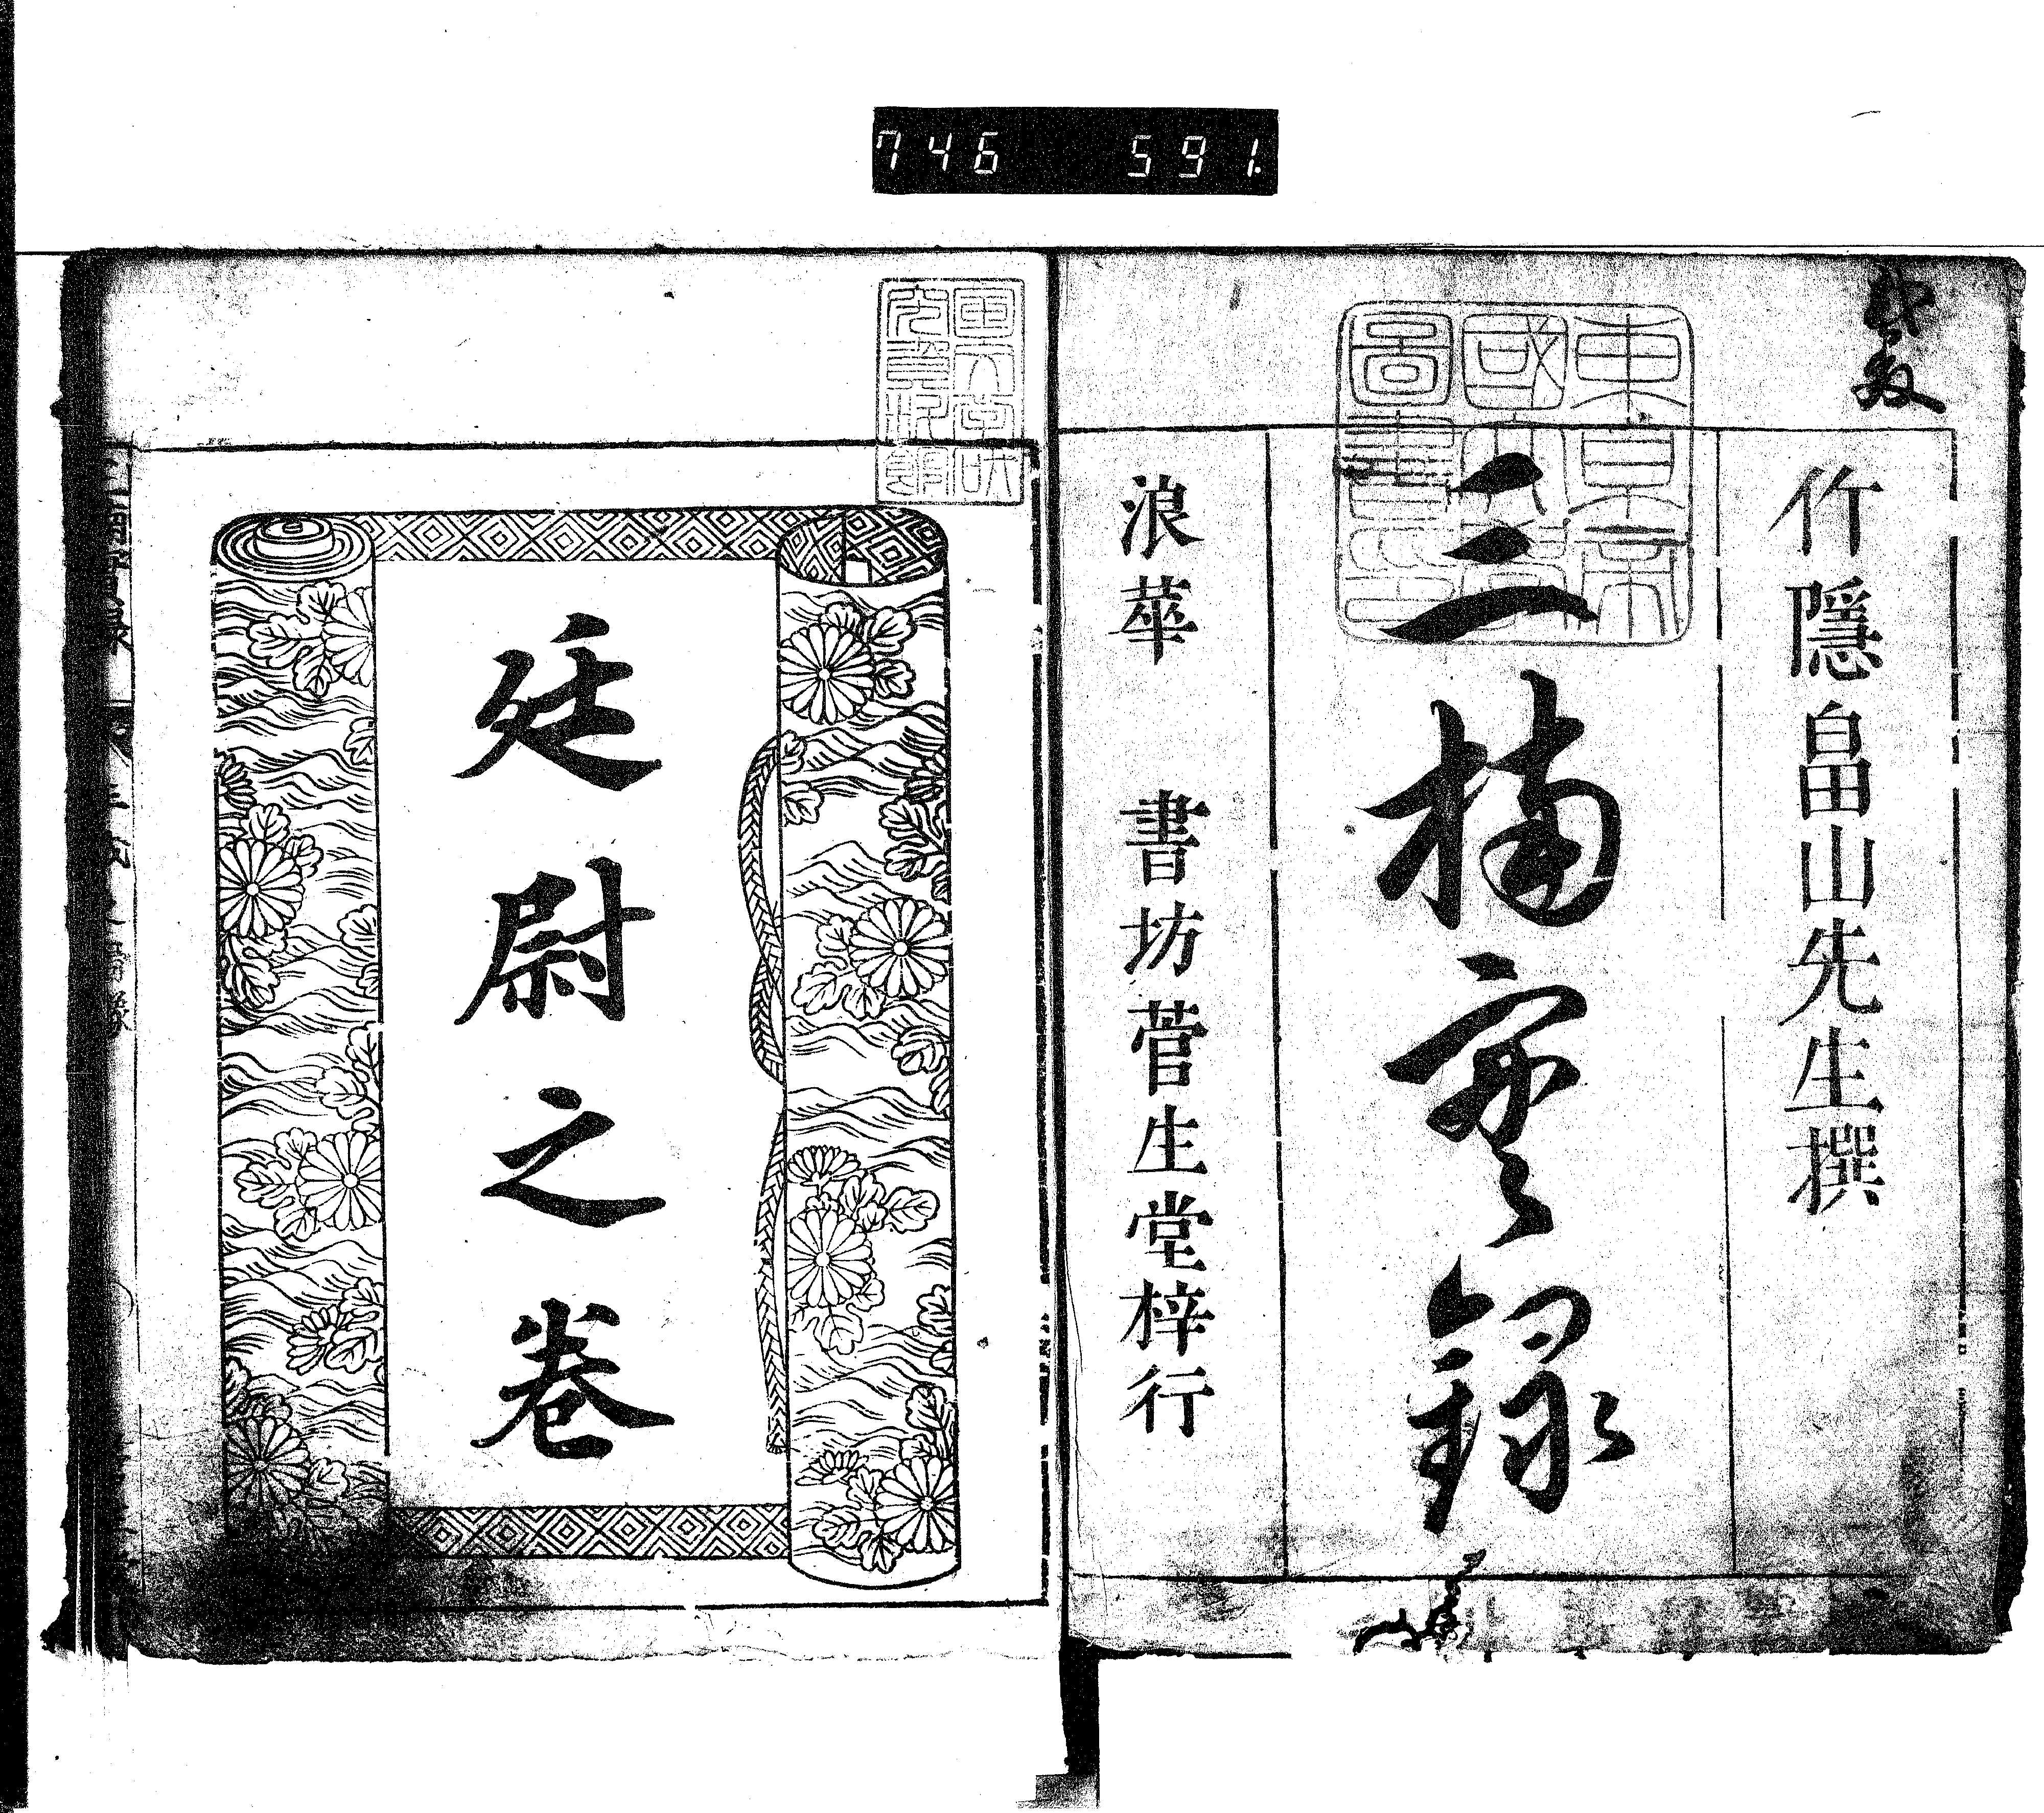 746 591.
竹隱畠山先生撰
三楠實錄
浪華 書坊菅生堂梓行
東京帝國大學圖書之印
廷尉之卷